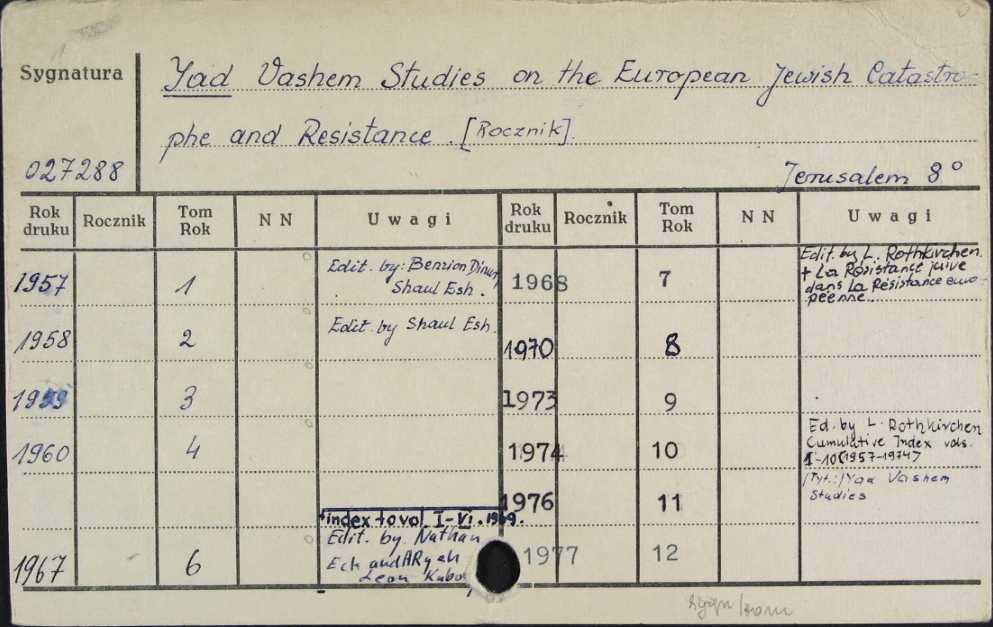 Sygnatura
Yad Vashem Studies on the European Jewish Catastro-
phe and Resistance. [Rocznik].
027288
Jerusalem 8°
Rok druku Rocznik Tom Rok N N Uwagi Rok druku Rocznik Tom Rok N N Uwagi
1957 1 Edit. by: Benzion Dinur
Shaul Esh.
1958 2 Edit. by Shaul Esh.
1959 3
1960 4
+index to vol. I-VI. 1969.
1967 6 Edit. by Nathan
Eck and ARyeh
Leon Kubo
1968 7 Edit. by L. Rothkirchen.
+ La Résistance juive
dans La Résistance euro-
péenne.
1970 8
1973 9
1974 10 Ed. by L. Rothkirchen
Cumulative Index vols.
I-10(1957-1974)
1976 11 /Tyt.:/Yad Vashem
Studies
1977 12